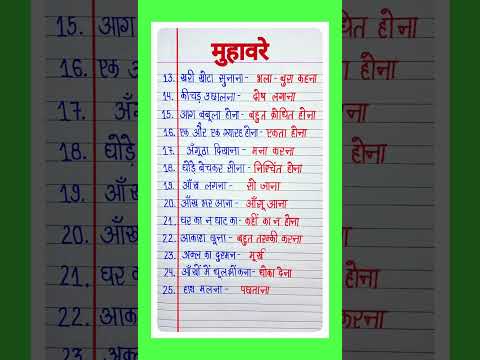 मुहावरे
13. खरी खोटा सुनाना - भला - बुरा कहना
14. कीचड़ उछालना - दोष लगाना
15. आग बबूला होना - बहुत क्रोधित होना
16. एक और एक ग्यारह होना - एकता होना
17. अँगूठा दिखाना - मना करना
18. घोड़े बेचकर सोना - निश्चिंत होना
19. आँख लगना - सो जाना
20. आँख भर आना - आँसू आना
21. घर का न घाट का - कहीं का न होना
22. आकाश छूना - बहुत तरक्की करना
23. अक्ल का दुश्मन - मूर्ख
24. आँखों में धूल झोंकना - धोका देना
25. हाथ मलना - पछताना